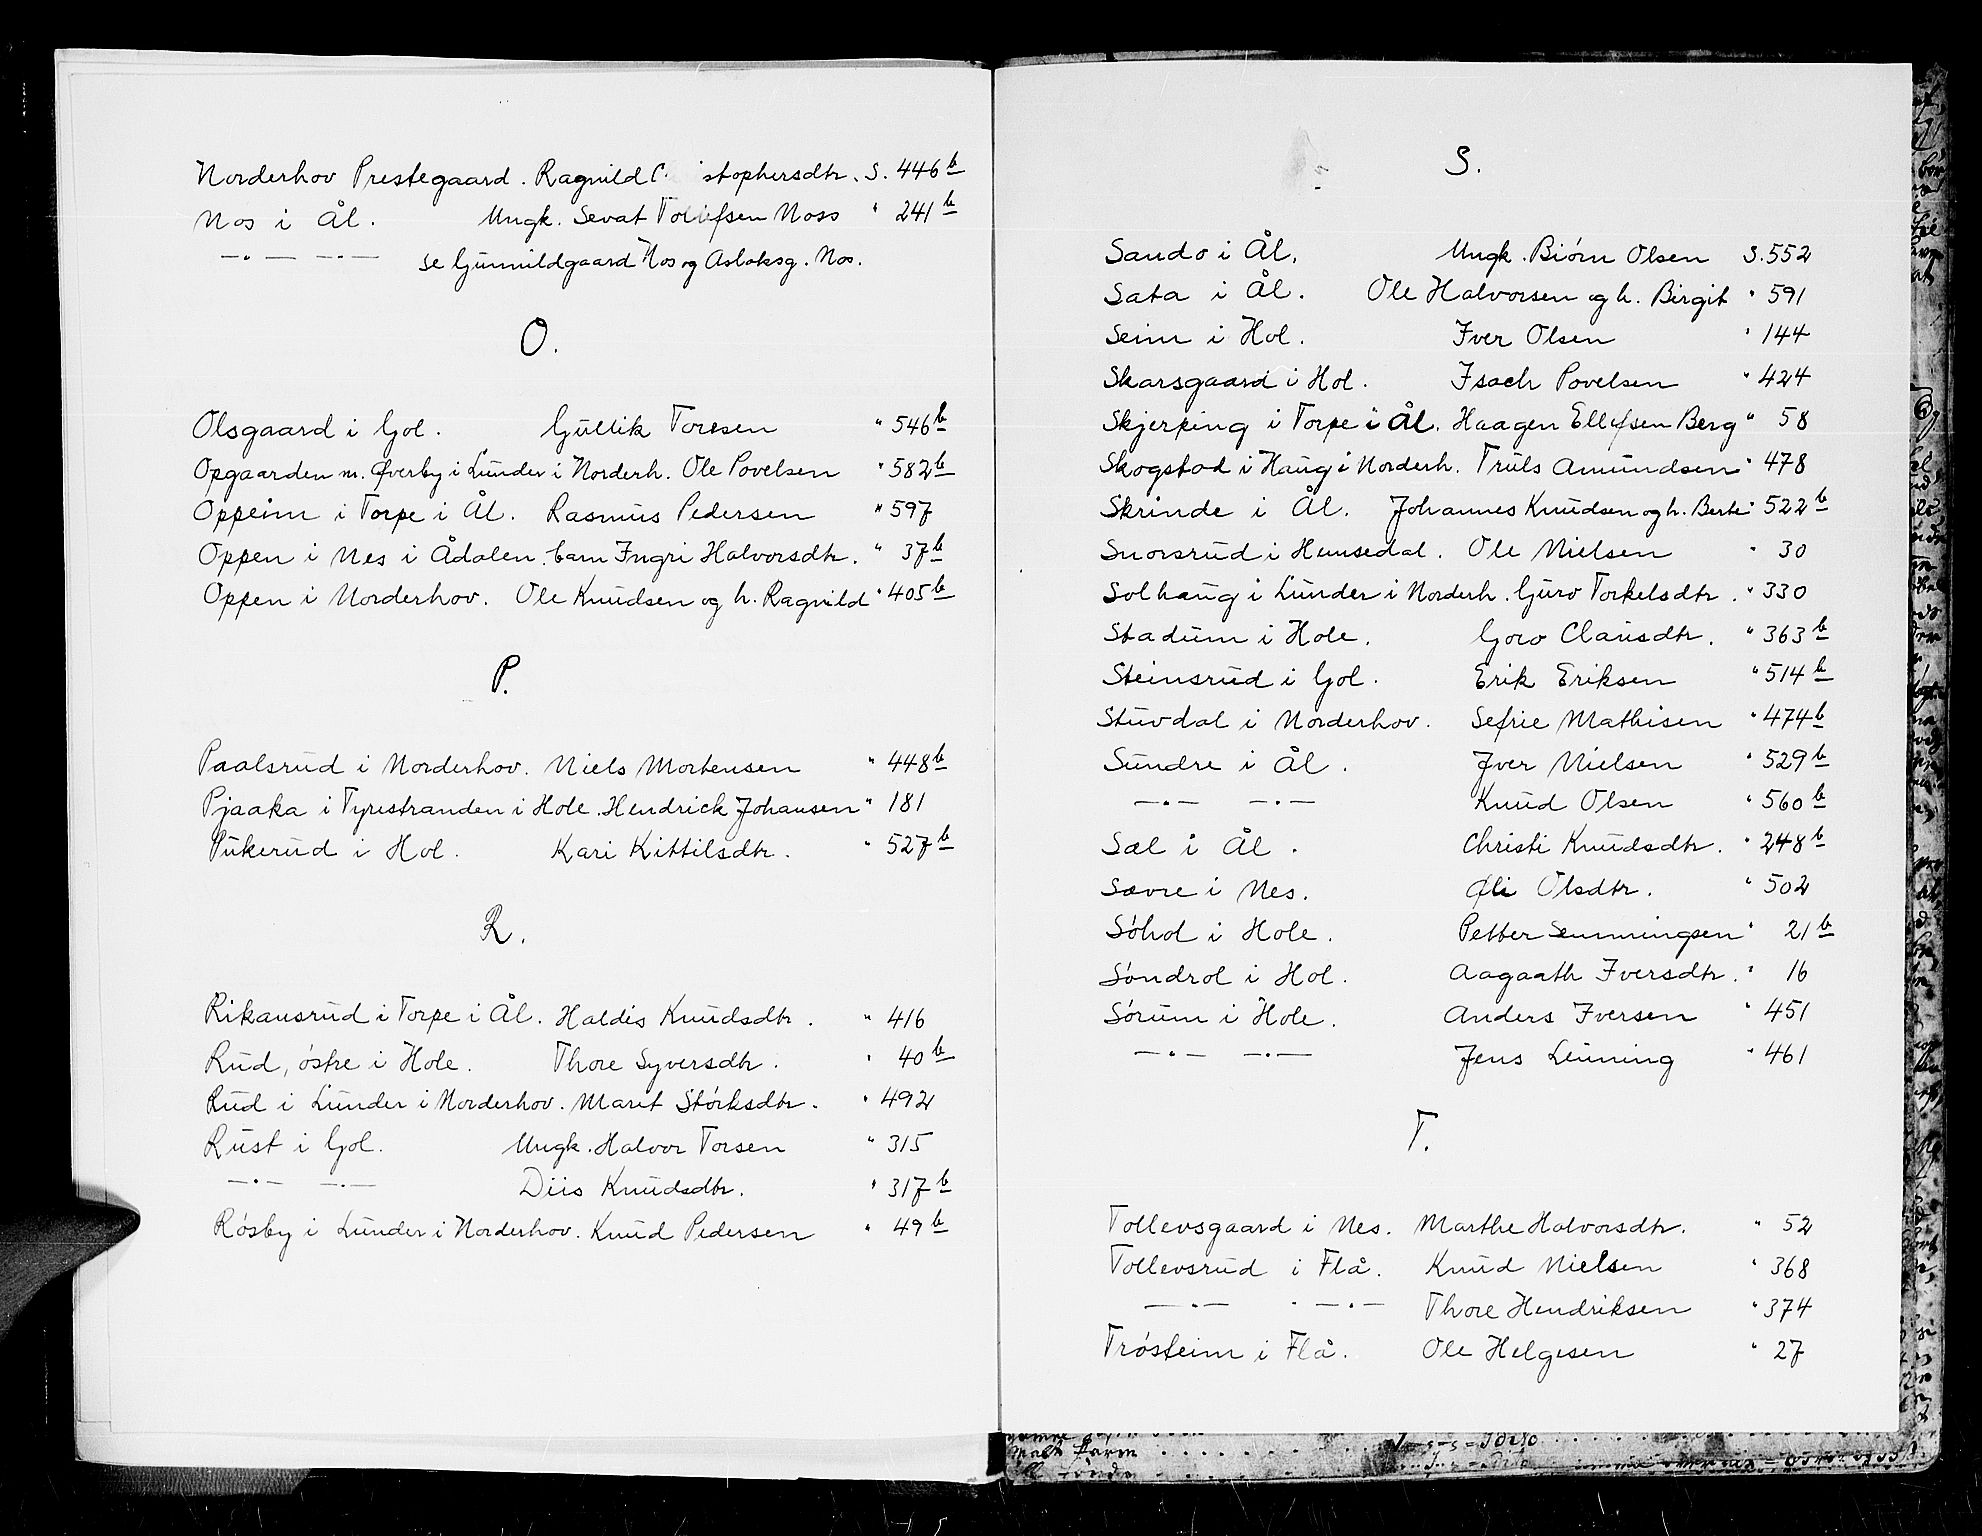 Norderhov Prestegaard. Ragnild C stophersdtr. S. 446b
Nos i Ål. Ungk. Sevat Tollefsen Noss " 241b
—·— —·— se Gunnildgaard Nos og Aslaksg. Nos.
O.
Olsgaard i Gol. Gullik Toresen " 546b
Opgaarden m. Øverby i Lunder i Norderh. Ole Povelsen " 582b
Oppeim i Torpe i Ål. Rasmus Pedersen " 597
Oppen i Nes i Ådalen. Cam Ingri Halvorsdtr. " 37b
Oppen i Norderhov. Ole Knudsen og h. Ragnild " 405b
P.
Paalsrud i Norderhov. Niels Mortensen " 448b
Pjaaka i Tyristranden i Hole. Hendrick Johansen " 181
Pukerud i Hol. Kari Kittilsdtr. " 527b
R.
Rikansrud i Torpe i Ål. Haldis Knudsdtr. " 416
Rud, östre i Hole. Thore Syversdtr. " 40b
Rud i Lunder i Norderhov. Marit Störksdtr. " 492
Rust i Gol. Ungk. Halvor Torsen " 315
—·— —·— Diis Knudsdtr. " 317b
Rösby i Lunder i Norderhov. Knud Pedersen " 49b
S.
Sando i Ål. Ungk. Biørn Olsen S. 552
Sata i Ål. Ole Halvorsen og h. Birgit " 591
Seim i Hol. Iver Olsen " 144
Skarsgaard i Hol. Isach Povelsen " 424
Skjerping i Torpe i Ål. Haagen Ellefsen Berg " 58
Skogstad i Haug i Norderh. Truls Amundsen " 478
Skrinde i Ål. Johannes Knudsen og h. Berte " 522b
Snorsrud i Hemsedal. Ole Nielsen " 30
Solhaug i Lunder i Norderh. Guro Torkelsdtr. " 330
Stadum i Hole. Goro Clausdtr. " 363b
Steinsrud i Gol. Erik Eriksen " 514b
Stuvdal i Norderhov. Sefrie Mathisen " 474b
Sundre i Ål. Iver Nielsen " 529b
—·— —·— Knud Olsen " 560b
Sæl i Ål. Christi Knudsdtr. " 248b
Sævre i Nes. Øli Olsdtr. " 502
Söhol i Hole. Petter Semmingsen " 21b
Söndrol i Hol. Aagaath Iversdtr. " 16
Sörum i Hole. Anders Iversen " 451
—·— —·— Jens Leuning " 461
T.
Tollevsgaard i Nes. Marthe Halvorsdtr. " 52
Tollevsrud i Flå. Knud Nielsen " 368
—·— —·— Thore Hendriksen " 374
Trösteim i Flå. Ole Helgesen " 27